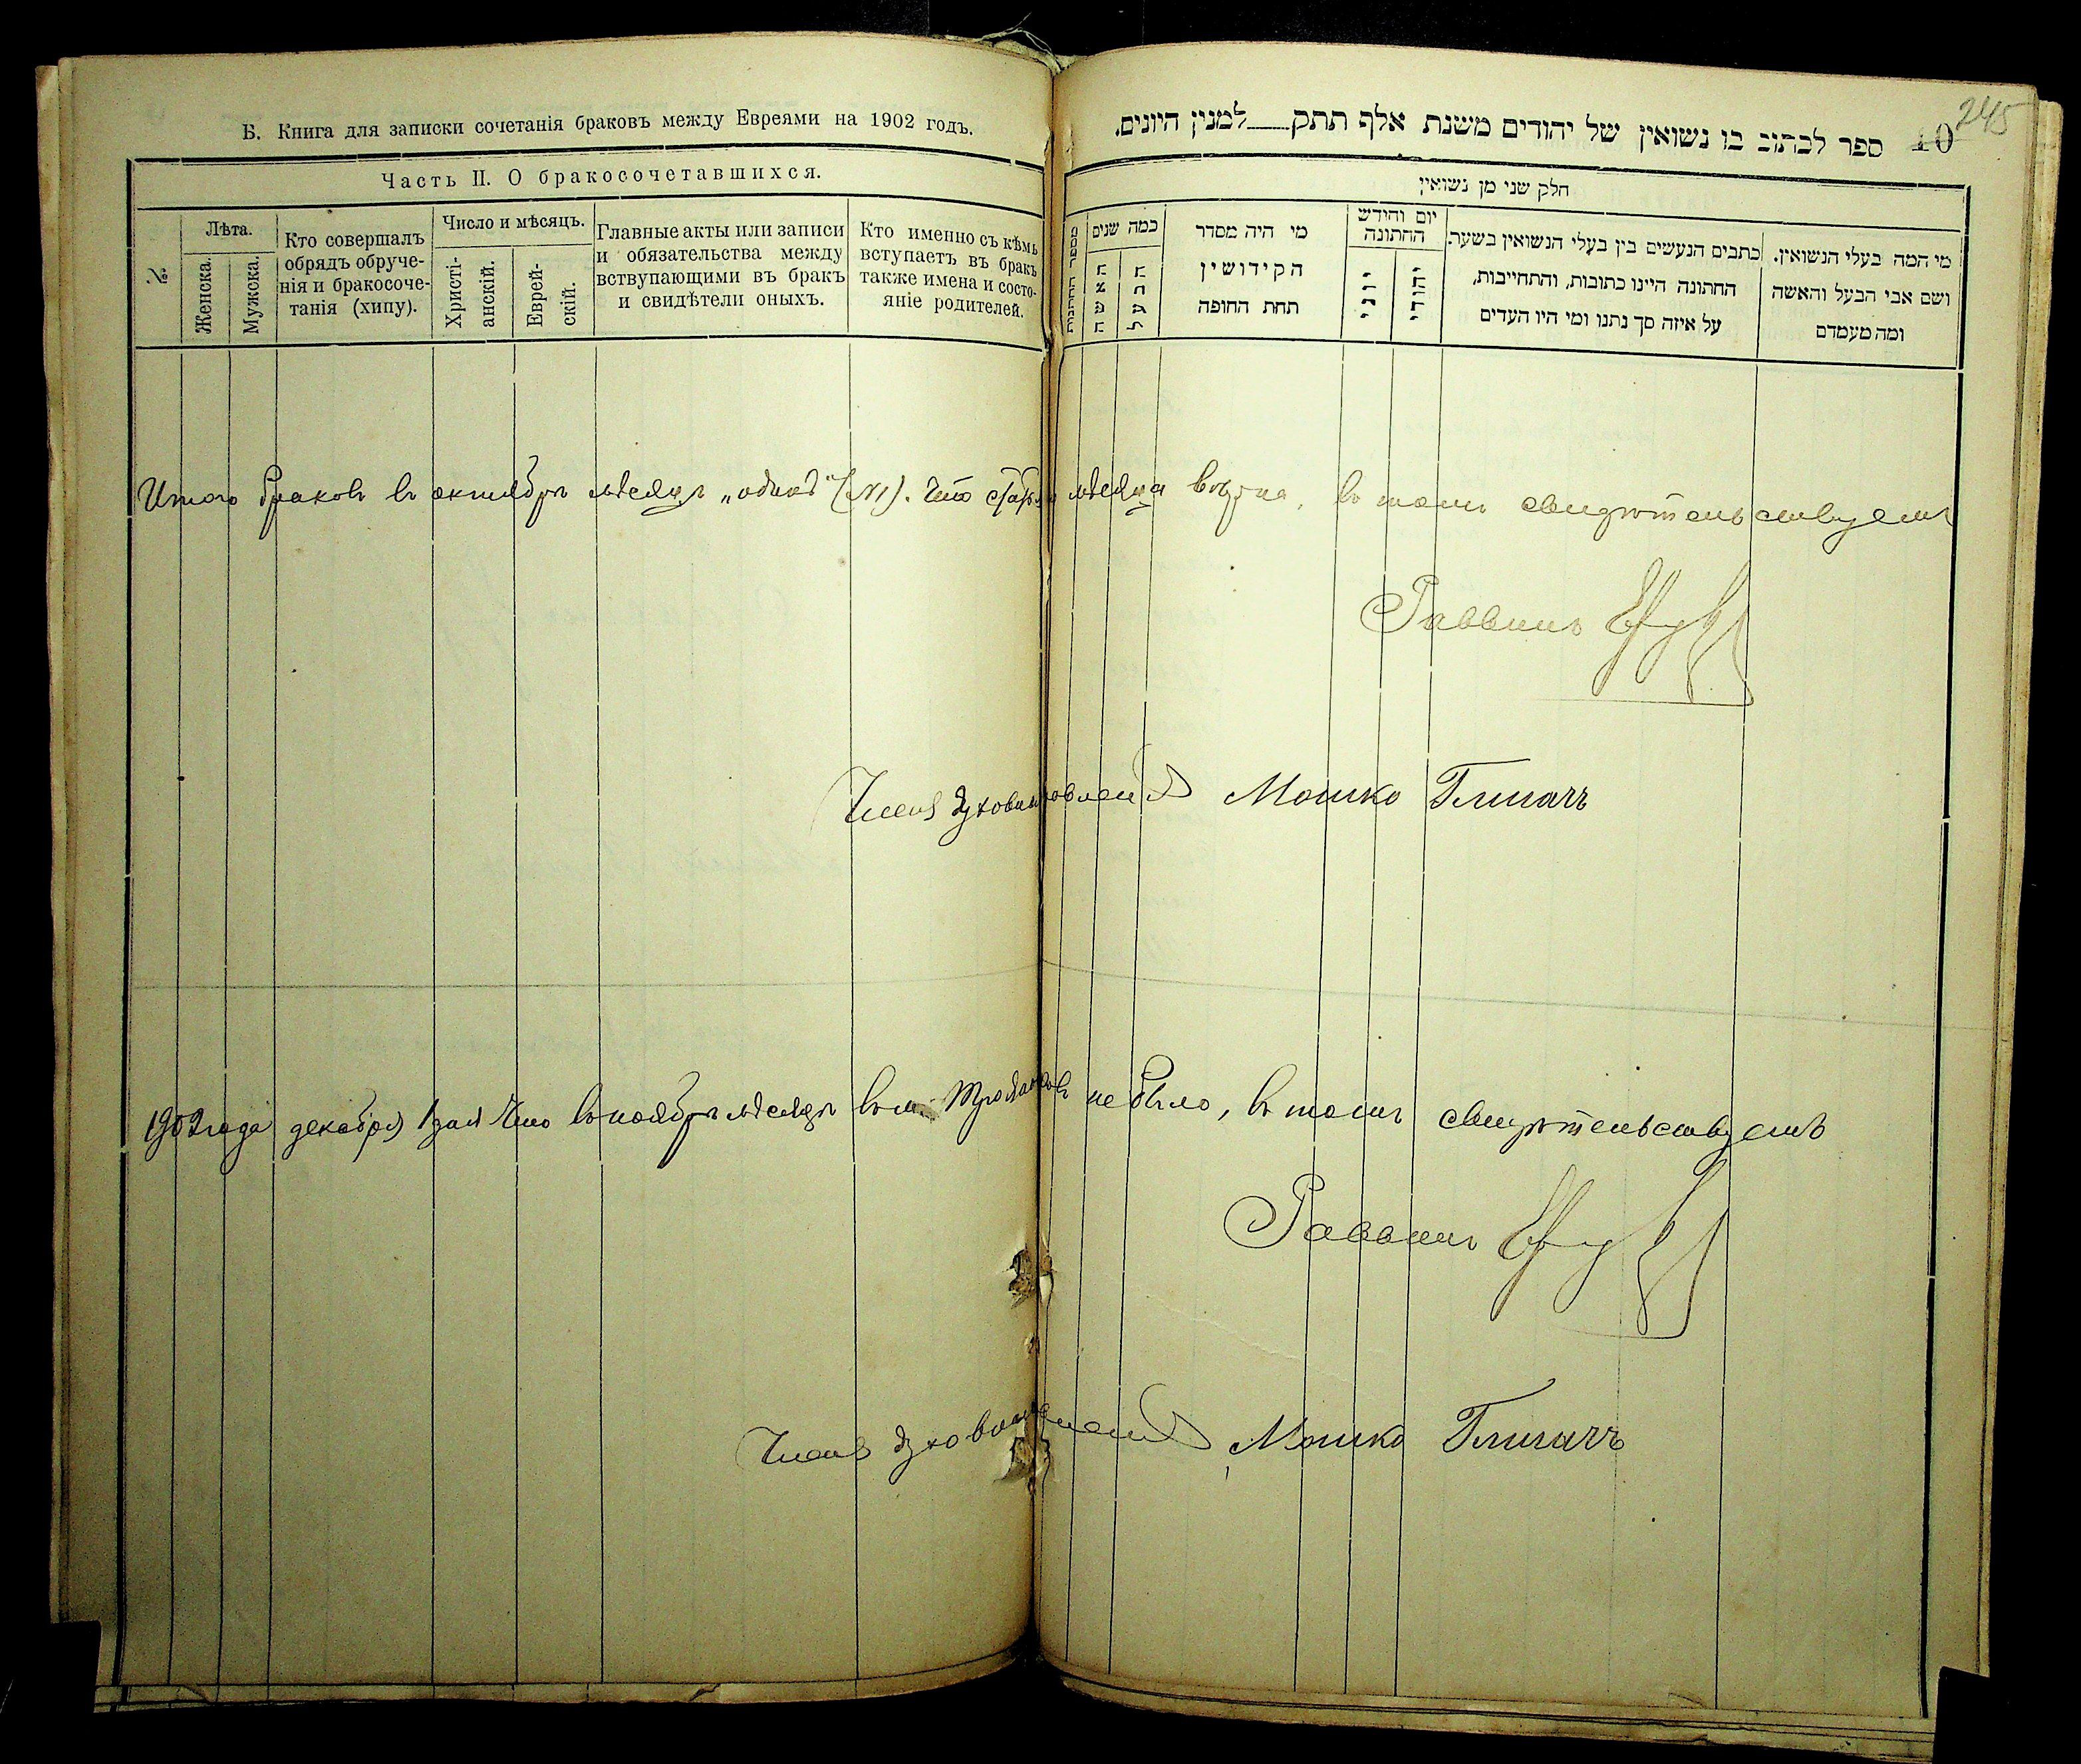 Б. Книга для записки сочетанія браковъ между Евреями на 1902 годъ.
Часть II. О бракосочетавшихся.
№
Лѣта.
Женска.
Мужска.
Кто совершалъ
обрядъ обруче-
нія и бракосоче-
танія (хипу).
Число и мѣсяцъ.
Христі-
анскій.
Еврей-
скій.
Главные акты или записи
и обязательства между
вствупающими въ бракъ
и свидѣтели оныхъ.
Кто именно съ кѣмъ
вступаетъ въ бракъ
также имена и состо-
яніе родителей.
245
ספר לכתוב בו נשואין של יהודים משנת אלף תתק למנין היונים. 10
חלק שני מן נשואין
מספר החתונות
כמה שנים
האשה
הבעל
מי היה מסדר
הקידושין
תחת החופה
יום וחידש
החתונה
יוני
יהודי
כתבים הנעשים בין בעלי הנשואין בשער.
החתונה היינו כתובות, והתחייבות,
על איזה סך נתנו ומי היו העדים
מי המה בעלי הנשואין.
ושם אבי הבעל והאשה
ומה מעמדם
Итого браковъ въ октябрѣ мѣсяцѣ „одинъ" (№1). Что мѣсяца вѣрна, въ томъ свидѣтельствуемъ
Раввинъ
Членъ духовн правленія Мошко Глигачъ
1902 года декабря 1 дня Что въ ноябрѣ мѣсяцѣ въ м. браковъ не было, въ томъ свидѣтельствуемъ
Раввинъ
Членъ духовн правленія Мошко Глигачъ